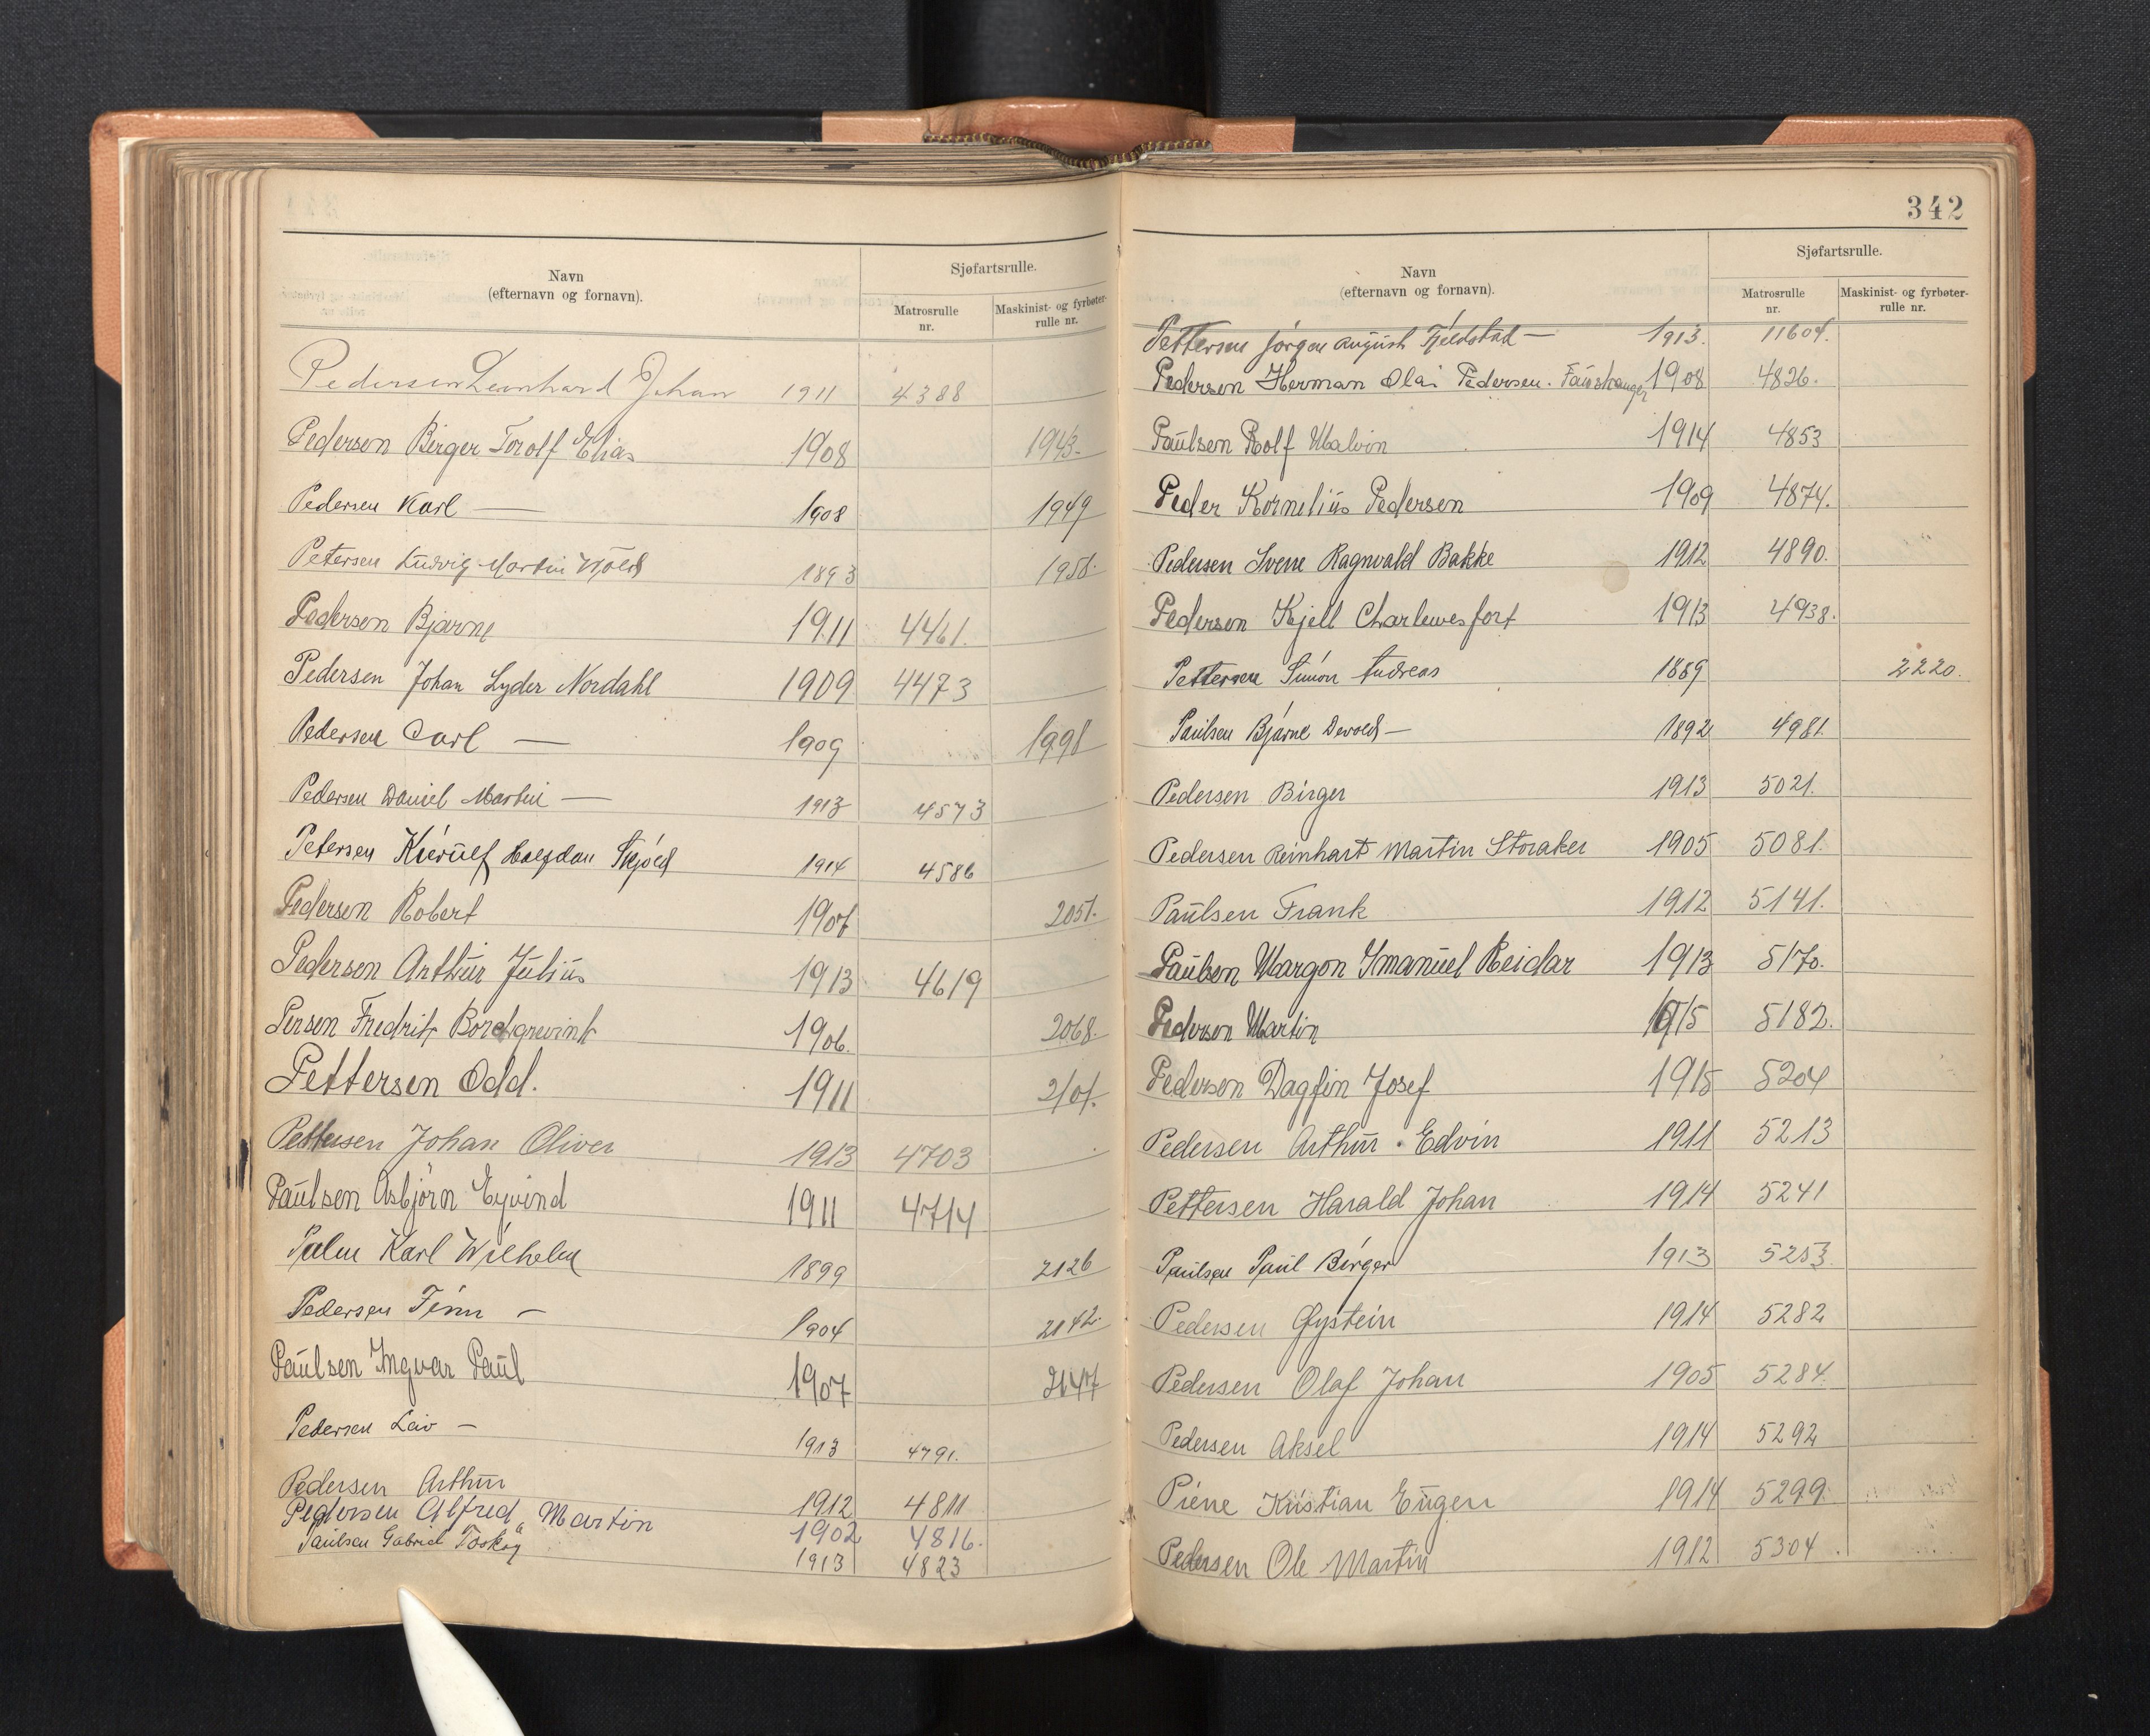 Navn
(efternavn og fornavn).
Sjøfartsrulle.
Matrosrulle
nr.
Maskinist- og fyrbøter-
rulle nr.
Pedersen Leonhard Johan 1911 4388
Pedersen Birger Torolf Elias 1908 1943.
Pedersen Karl — 1908 1949
Petersen Ludvig Martin 1893 1958.
Pedersen Bjarne 1911 4461.
Pedersen Johan Lyder Nordahl 1909 4473
Pedersen Carl — 1909 1998
Pedersen Daniel Martin — 1913 4573
Petersen Kierulf Halfdan Skjold 1914 4586
Pedersen Robert 1907 2051.
Pedersen Arthur Julius 1913 4619
Persen Fredrik Borchgrevink 1906. 2068.
Pettersen Odd. 1911 2101.
Pettersen Johan Oliver 1913 4703
Paulsen Asbjørn Eyvind 1911 4714
Palm Karl Wilhelm 1899 2126
Pedersen Finn — 1904 2142.
Paulsen Ingvar Paul 1907 2147
Pedersen Leiv — 1913 4791.
Pedersen Arthur 1912 4811
Pedersen Alfred Martin 1902 4816.
Paulsen Gabriel 1913 4823
342
Navn
(efternavn og fornavn).
Sjøfartsrulle.
Matrosrulle
nr.
Maskinist- og fyrbøter-
rulle nr.
Pettersen Jørgen August Fjeldstad — 1913. 11604.
Pedersen Herman Olai Pedersen. Fauskanger 1908 4826.
Paulsen Rolf Malvin 1914 4853
Peder Kornelius Pedersen 1909 4874.
Pedersen Svene Ragnvald Bakke 1912 4890.
Pedersen Kjell 1913 4938.
Pettersen Simon Andreas 1889 2220.
Paulsen Bjarne Devold — 1892 4981.
Pedersen Birger 1913 5021.
Pedersen Reinhart Martin Storaker 1905 5081.
Paulsen Frank 1912 5141.
Paulsen Margon Imanuel Reidar 1913 5170.
Pedersen Martin 1915 5182.
Pedersen Dagfin Josef 1915 5204
Pedersen Arthur Edvin 1911 5213
Pettersen Harald Johan 1914 5241
Paulsen Paul Birger 1913 5253
Pedersen Øystein 1914 5282
Pedersen Olaf Johan 1905 5284.
Pedersen Aksel 1914 5292
Piene Kristian Eugen 1914 5299.
Pedersen Ole Martin 1912 5304.